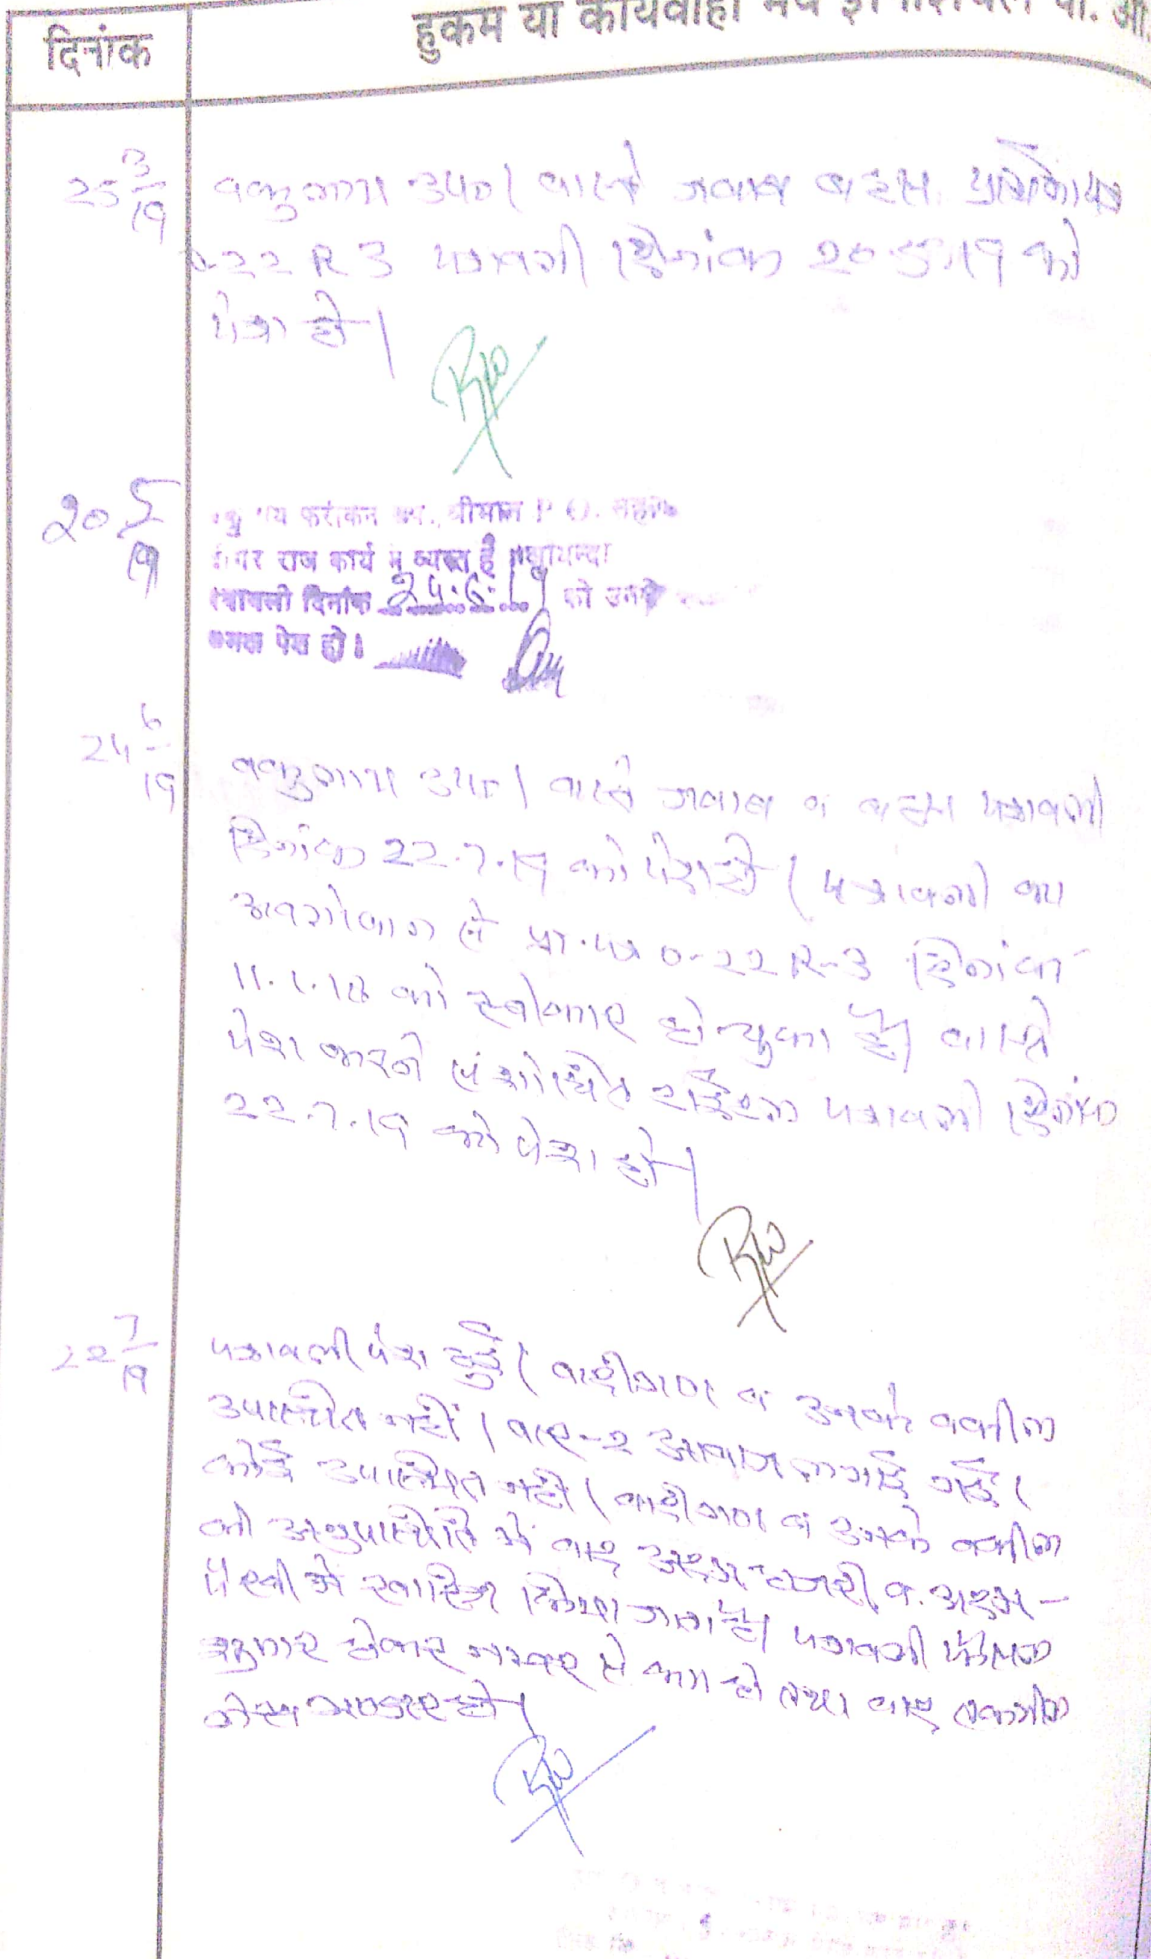 दिनांक
हुकम या कार्यवाही मय इनिशियल पी. ओ.
25 3/19
वकुलाय उप0। वास्ते जवाब बहस प्रार्थना पत्र
0-22 R 3 पत्रावली दिनांक 20.5.19 को
पेश हो।
20 5/19
पी. ओ.
राज कार्य में व्यस्त है
पत्रावली दिनांक 24.6.19 को उनके
समक्ष पेश हो।
24 6/19
वकुलाय उप0। वास्ते जवाब व बहस पत्रावली
दिनांक 22.7.19 को पेश हो। पत्रावली का
अवलोकन से प्रा.पत्र 0-22 R-3 दिनांक
11.1.18 को स्वीकार हो चुका है। वास्ते
पेश करने संशोधित टाईटल पत्रावली दिनांक
22.7.19 को पेश हो।
22 7/19
पत्रावली पेश हुई। वादीगण व उनके वकील
उपस्थित नहीं। बार-2 आवाज लगाई गई।
कोई उपस्थित नहीं। वादीगण व उनके वकील
की अनुपस्थिति में वाद अदम हाजरी व अदम-
पैरवी में खारिज किया जाता है। पत्रावली फैसल
शुमार होकर नम्बर से कम हो तथा बाद तकमील